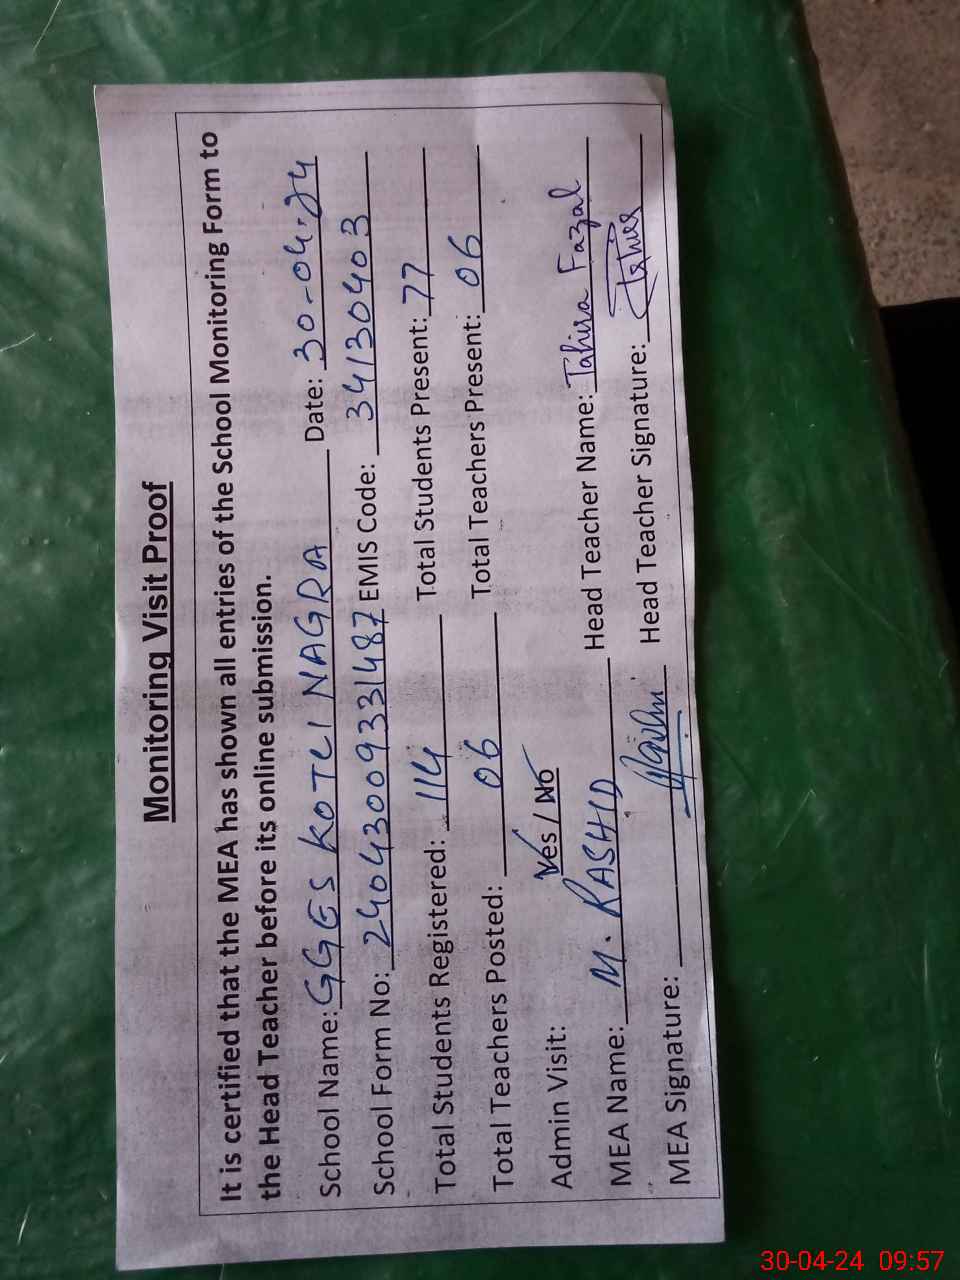 Monitoring Visit Proof
It is certified that the MEA has shown all entries of the School Monitoring Form to
the Head Teacher before its online submission.
School Name: GGES KOTLI NAGRA Date: 30-04-24
School Form No: 2404300933 1487 EMIS Code: 34130403
Total Students Registered: 114 Total Students Present: 77
Total Teachers Posted: 06 Total Teachers Present: 06
Admin Visit: Yes / No
MEA Name: M. RASHID Head Teacher Name: Tahira Fazal
MEA Signature: Head Teacher Signature:
30-04-24 09:57